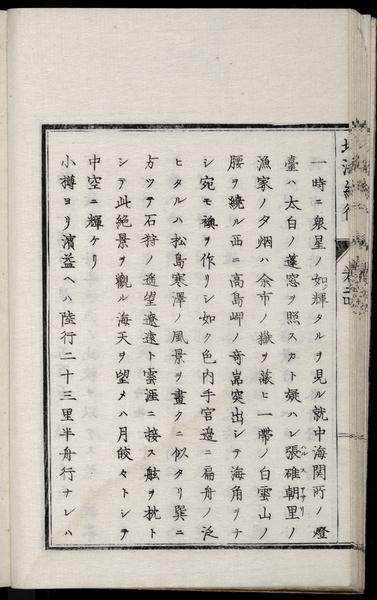 北海紀行 巻二
一時ニ衆星ノ如ク輝タルヲ見ル就中海関所ノ燈
臺ハ太白ノ蓬窓ヲ照スカト疑ハレ張碓朝里ノ
ハルス アサリ
漁家ノ夕烟ハ余市ノ嶽ヲ蔽ヒ一帯ノ白雲山ノ
腰ヲ繞ル西ニ高島岬ノ奇嵓突出シテ海角ヲナ
シ宛モ襖ヲ作リシ如ク色内手宮邉ニ扁舟ノ泛
ヒタルハ松島寒澤ノ風景ヲ畫クニ似タリ巽ニ
方ツテ石狩ノ遥望遼遠ト雲涯ニ接ス舷ヲ枕ト
シテ此絶景ヲ觀ル海天ヲ望メハ月皎々トシテ
中空ニ輝ケリ
小樽ヨリ濱益ヘハ陸行二十三里半舟行ナレハ